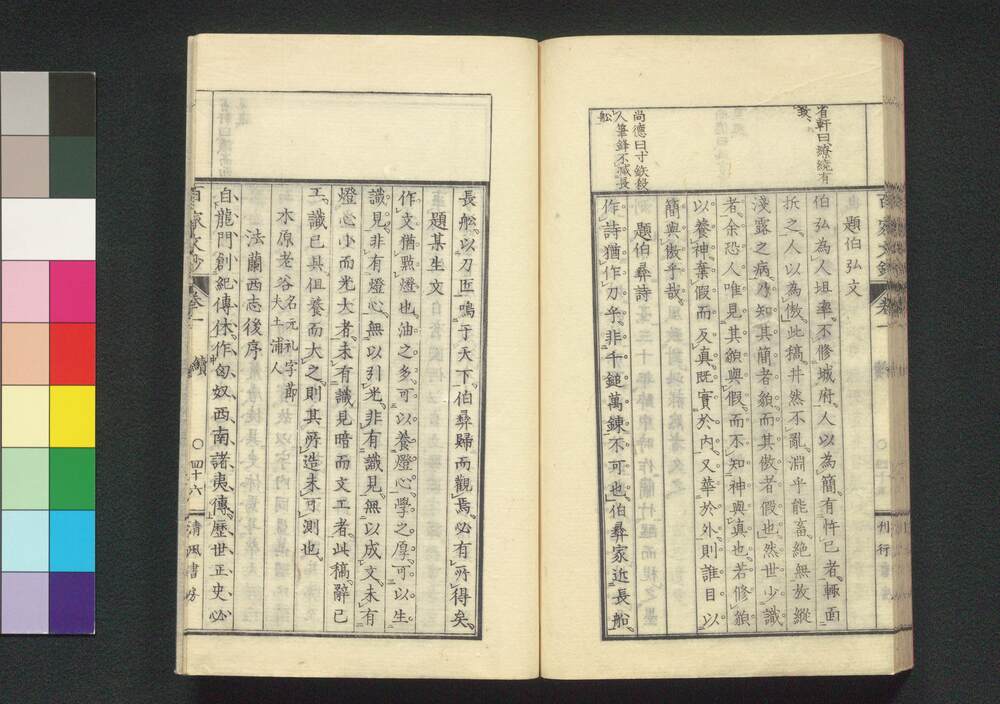 省軒曰繚繞有
致、
尚德曰寸鉄殺
人筆鋒不減長
舩
題伯弘文
伯弘為人坦率不修城府人以為簡有忤已者輒面
折之人以為傲此稿井然不亂淵乎能畜絶無放縱
淺露之病乃知其簡者貌而其傲者假也然世少識
者余恐人唯見其貌與假而不知神與真也若修貌
以養神葉假而反真既實於内又華於外則誰目以
簡與傲乎哉
題伯彜詩
作詩猶作刀乎非千鎚萬錬不可也伯彜家近長船
刊行
長舩以刀匠鳴于天下伯彜歸而觀焉必有所得矣
題某生文
作文猶㸃燈也油之多可以養燈心學之厚可以生
識見非有燈心無以引光非有識見無以成文未有
燈心小而光大者未有識見暗而文工者此稿辭已
工識已具俎養而大之則其所造未可測也
木原老谷名元礼字節夫土浦人
法蘭西志後序
自龍門創紀傳体作匈奴西南諸夷傳歷世正史必
百家文鈔
卷一
續
四十六
清風書房